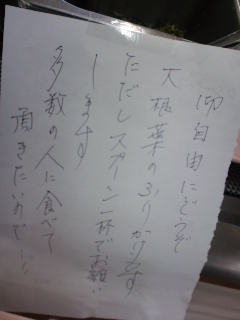 御自由にどうぞ
大根菜のふりかけです
ただしスプーン一杯でお願い
します
多数の人に食べて
頂きたいので…